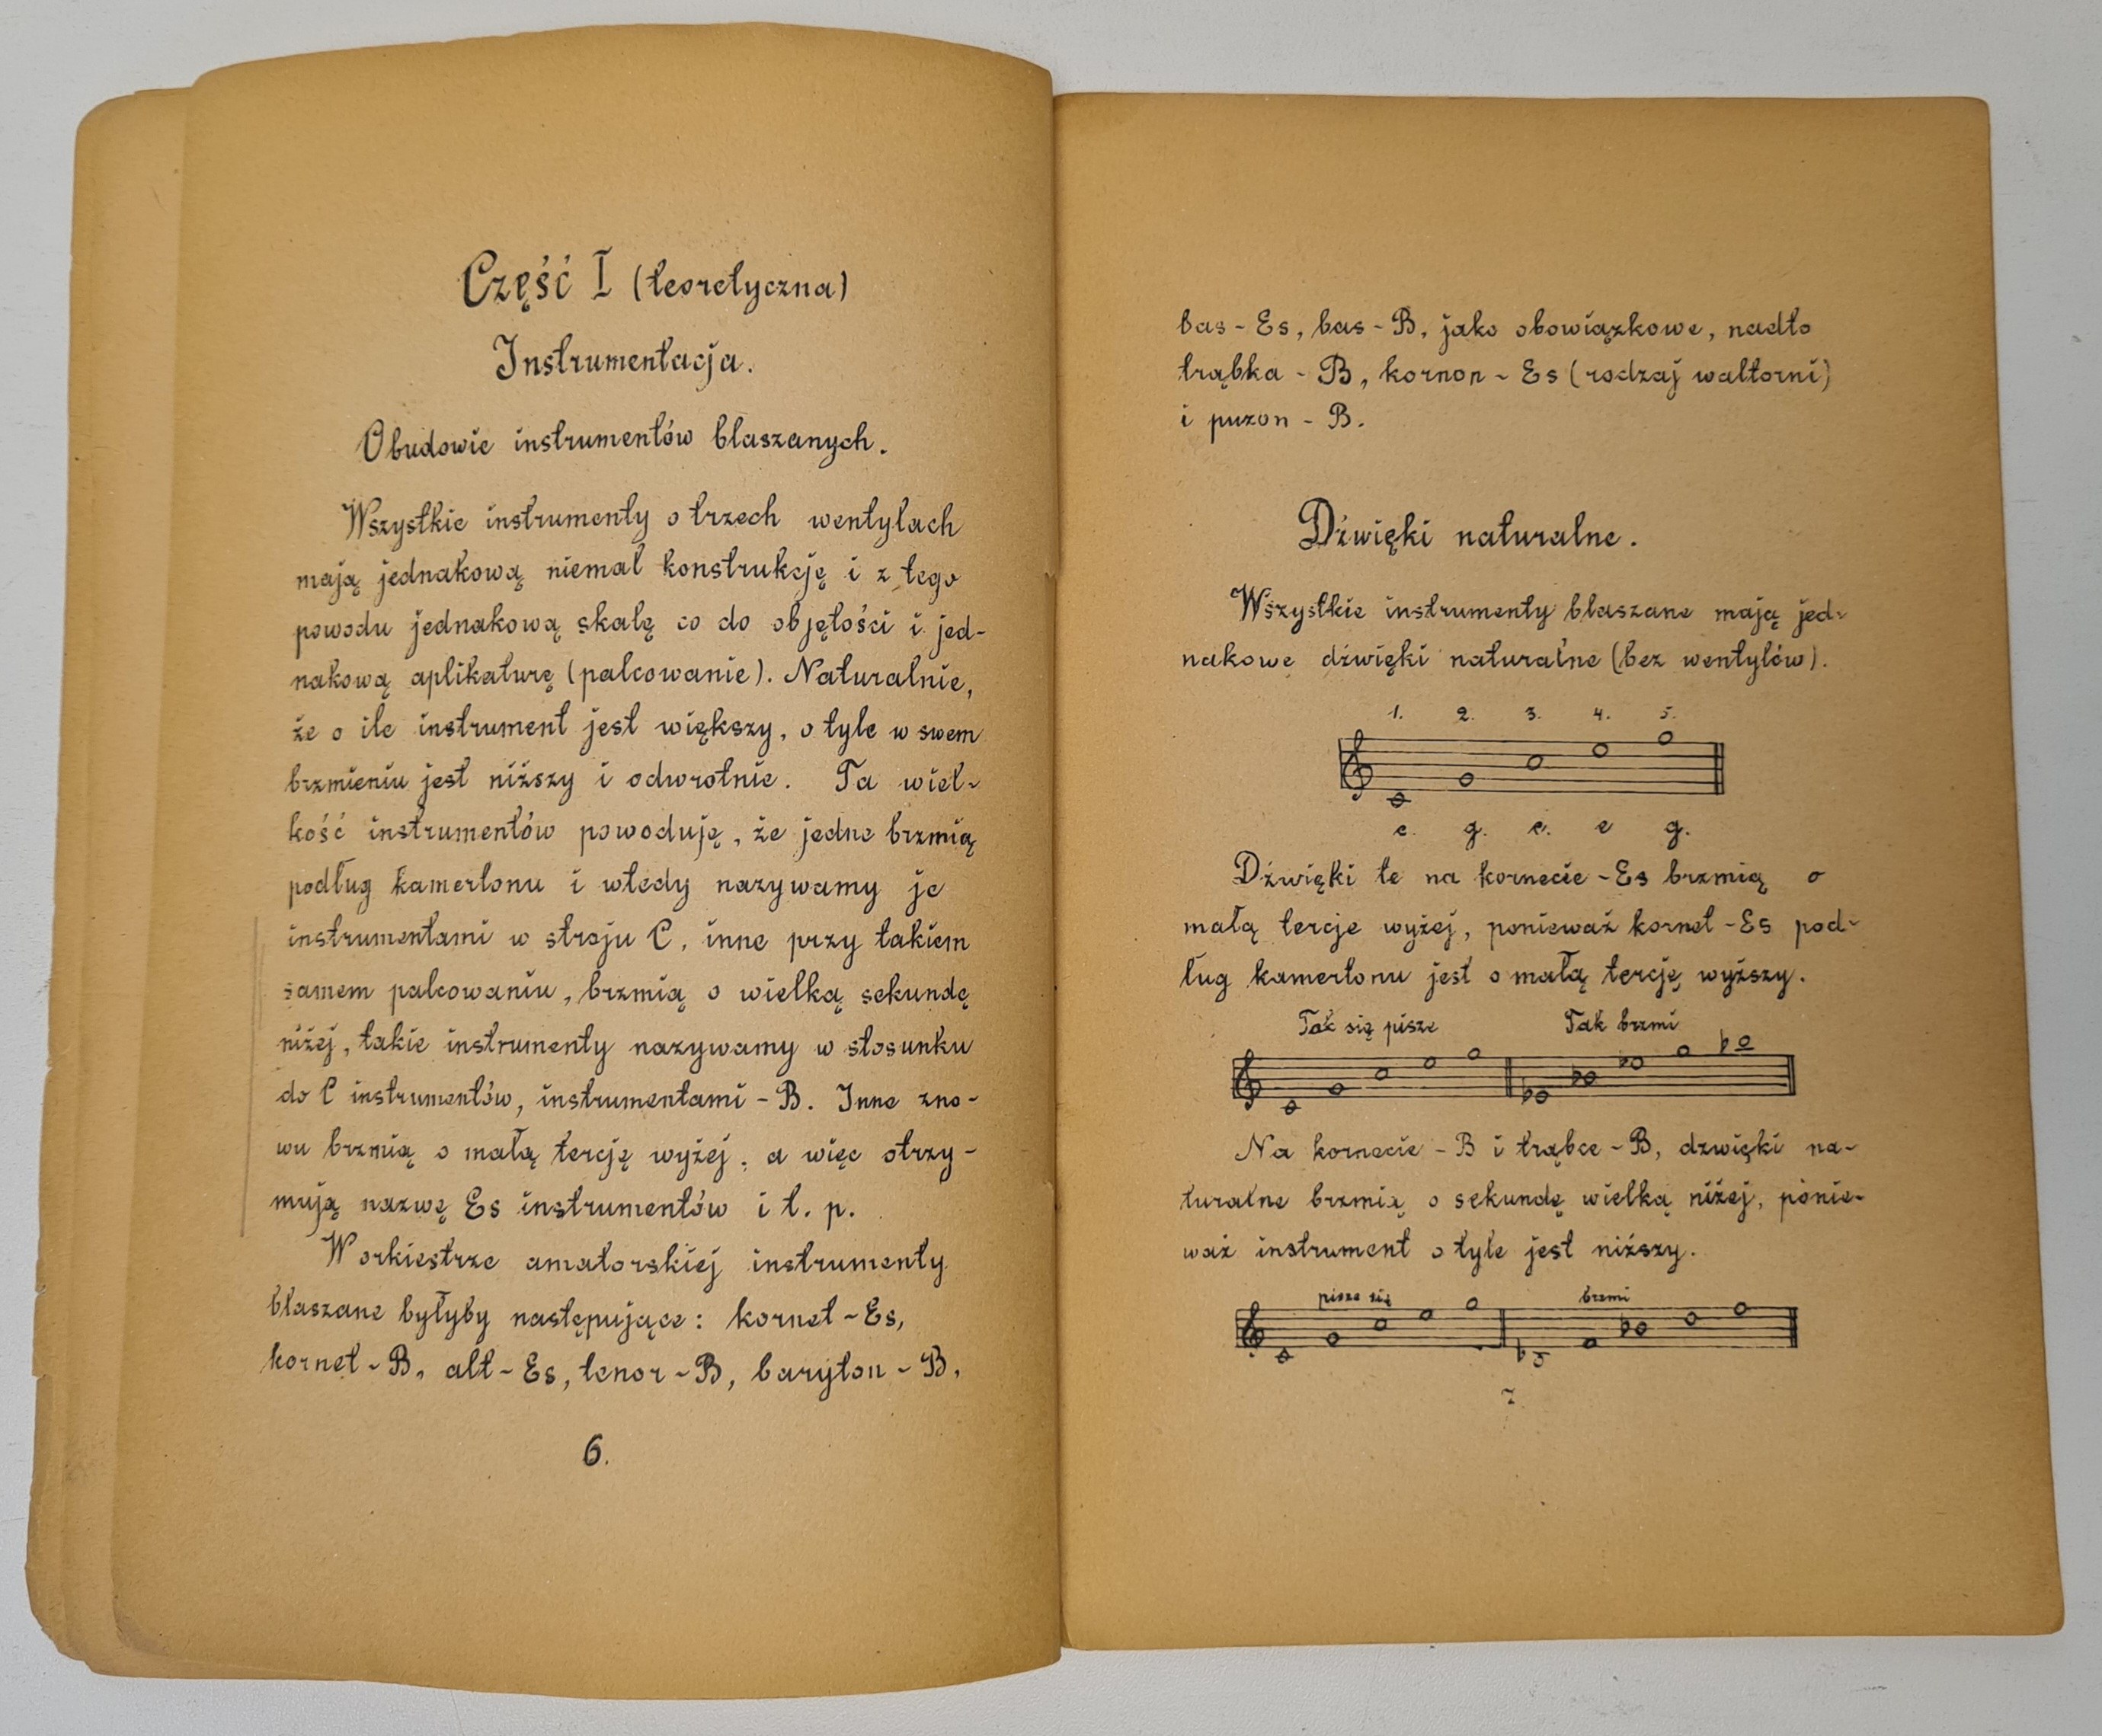 Część I (teoretyczna)
Instrumentacja.
O budowie instrumentów blaszanych.
Wszystkie instrumenty o trzech wentylach
mają jednakową niemal konstrukcję i z tego
powodu jednakową skalę co do objętości i jed-
nakową aplikaturę (palcowanie). Naturalnie,
że o ile instrument jest większy, o tyle w swem
brzmieniu jest niższy i odwrotnie. Ta wiel-
kość instrumentów powoduję, że jedne brzmią
podług kamertonu i wtedy nazywamy je
instrumentami w stroju C, inne przy takiem
samem palcowaniu, brzmią o wielką sekundę
niżej, takie instrumenty nazywamy w stosunku
do C instrumentów, instrumentami - B. Inne zno-
wu brzmią o małą tercję wyżej, a więc otrzy-
mują nazwę Es instrumentów i t. p.
W orkiestrze amatorskiej instrumenty
blaszane byłyby następujące: kornet - Es,
kornet - B, alt - Es, tenor - B, baryton - B,
6.
bas - Es, bas - B, jako obowiązkowe, nadto
trąbka - B, kornon - Es (rodzaj waltorni)
i puzon - B.
Dźwięki naturalne.
Wszystkie instrumenty blaszane mają jed-
nakowe dźwięki naturalne (bez wentylów).
1. 2. 3. 4. 5.
c. g. c. e g.
Dźwięki te na kornecie - Es brzmią o
małą tercje wyżej, ponieważ kornet - Es pod-
ług kamertonu jest o małą tercję wyższy.
Tak się pisze Tak brzmi
Na kornecie - B i trąbce - B, dzwięki na-
turalne brzmią o sekundę wielką niżej, ponie-
waż instrument o tyle jest niższy.
pisze się brzmi
7